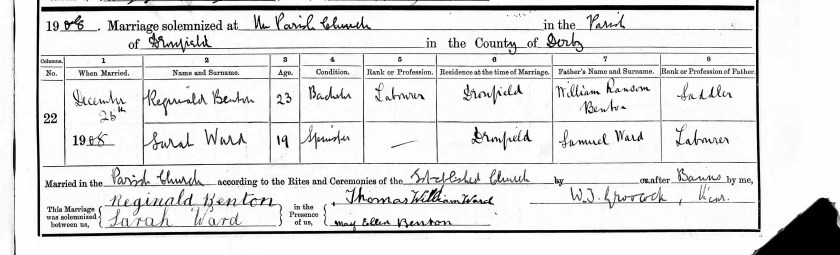 1908. Marriage solemnized at the Parish Church in the Parish
of Dronfield in the County of Derby
Columns. 1 2 3 4 5 6 7 8
No. When Married. Name and Surname. Age. Condition. Rank or Profession. Residence at the time of Marriage. Father's Name and Surname. Rank or Profession of Father.
22 December 26th 1908 Reginald Benton 23 Bachelor Labourer Dronfield William Ransom Benton Saddler
Sarah Ward 19 Spinster — Dronfield Samuel Ward Labourer
Married in the Parish Church according to the Rites and Ceremonies of the Established Church by or after Banns by me,
This Marriage was solemnized between us, Reginald Benton Sarah Ward in the Presence of us, Thomas William Ward May Ellen Benton W.J. Vicar.